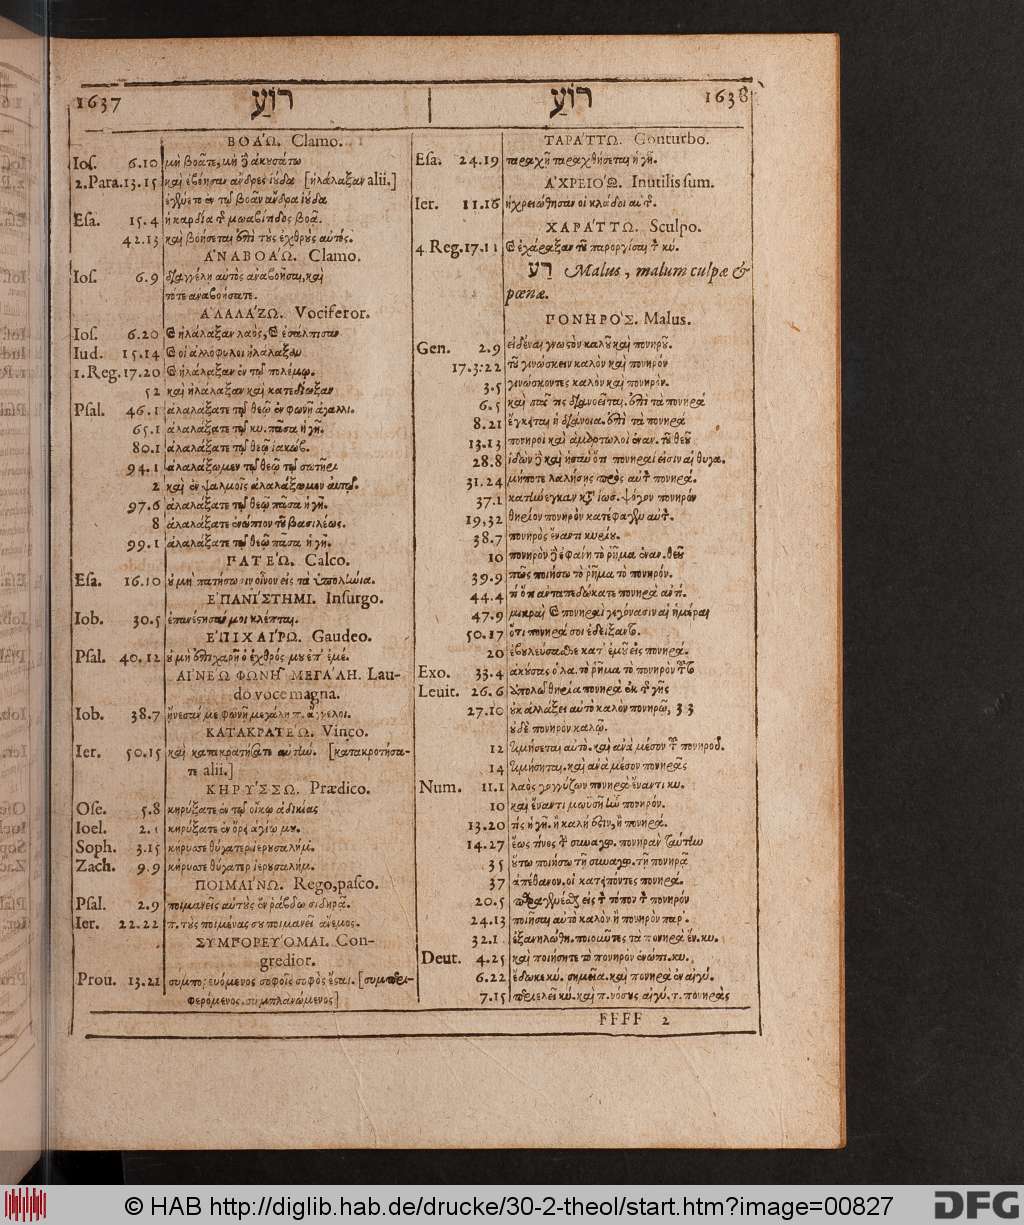 1637 רוֹעַ
ΒΟΑΏ. Clamo.
Ios. 6.10 μὴ βοᾶτε, μὴ ἀκυσάτω
2. Para. 13.15 καὶ ἐβόησαν ἄνδρες ἰύδα [ἠλάλαξαν alii.]
βοᾶν ἄνδρα ἰύδα
Esa. 15.4 ἡ καρδία τ μωαβίτιδος βοᾷ.
42.13 καὶ βοήσεται ἐπὶ τὺς ἐχθρὺς αὐτῦ.
ἈΝΑΒΟΆΩ. Clamo.
Ios. 6.9 διαγγέλη αὐτὸς ἀναβοῆσαι, καὶ
τότε ἀναβοήσατε.
ἈΛΑΛΆΖΩ. Vociferor.
Ios. 6.20 ϗ ἠλάλαξαν λαὸς, ϗ ἐσάλπισαν
Iud. 15.14 ϗ οἱ ἀλλόφυλοι ἠλάλαξαν
1. Reg. 17.20 ϗ ἠλάλαξαν ἐν τῷ πολέμῳ.
52 καὶ ἠλάλαξαν καὶ κατεδίωξαν
Psal. 46.1 ἀλαλάξατε τῷ θεῷ ἐν φωνῇ ἀγαλλι.
65.1 ἀλαλάξατε τῷ κυ. πᾶσα ἡ γῆ.
80.1 ἀλαλάξατε τῷ θεῷ ἰακώβ.
94.1 ἀλαλάξωμεν τῷ θεῷ τῷ σωτῆρι
2 καὶ ἐν ψαλμοῖς ἀλαλάξωμεν αὐτῷ.
97.6 ἀλαλάξατε τῷ θεῷ πᾶσα ἡ γῆ.
8 ἀλαλάξατε ἐνώπιον τῦ βασιλέως.
99.1 ἀλαλάξατε τῷ θεῷ πᾶσα ἡ γῆ.
ΠΑΤΈΩ. Calco.
Esa. 16.10 ὐ μὴ πατήσωσιν οἶνον εἰς τὰ ὑπολήνια.
ἘΠΑΝΊΣΤΗΜΙ. Insurgo.
Iob. 30.5 ἐπανέστησάν μοι κλέπται.
ἘΠΙΧΑΊΡΩ. Gaudeo.
Psal. 40.12 ὐ μὴ ἐπιχαρῇ ὁ ἐχθρός μυ ἐπ' ἐμέ.
ΑΙΝΕΩ ΦΩΝΗ͂ ΜΕΓΆΛΗ. Lau-
do voce magna.
Iob. 38.7 ᾔνεσάν με φωνῇ μεγάλῃ π. ἄγγελοι.
ΚΑΤΑΚΡΑΤΈΩ. Vinco.
Ier. 50.15 καὶ κατακρατήσατε αὐτήν. [κατακροτήσα-
τε alii.]
ΚΗΡΎΣΣΩ. Prædico.
Ose. 5.8 κηρύξατε ἐν τῷ οἴκῳ ἀδικίας
Ioel. 2.1 κηρύξατε ἐν ὄρει ἁγίῳ μυ.
Soph. 3.15 κήρυσσε θύγατερ ἱερυσαλήμ.
Zach. 9.9 κήρυσσε θύγατερ ἱερυσαλήμ.
ΠΟΙΜΑΊΝΩ. Rego, pasco.
Psal. 2.9 ποιμανεῖς αὐτὺς ἐν ῥάβδῳ σιδηρᾷ.
Ier. 22.22 π. τὺς ποιμένας συ ποιμανεῖ ἄνεμος.
ΣΥΜΠΟΡΕΎΟΜΑΙ. Con-
gredior.
Prou. 13.21 συμπορευόμενος σοφοῖς σοφὸς ἔσαι. [συμπερι-
φερόμενος. συμπλανώμενος]
רוֹעַ 1638
ΤΑΡΆΤΤΩ. Conturbo.
Esa. 24.19 ταραχῇ ταραχθήσεται ἡ γῆ.
ἈΧΡΕΙΌΩ. Inutilis sum.
Ier. 11.16 ἠχρειώθησαν οἱ κλάδοι αὐτ.
ΧΑΡΆΤΤΩ. Sculpo.
4 Reg. 17.11 ϗ ἐχάραξαν τῦ παροργίσαι τ κύ.
רָע Malus, malum culpæ &
pœnæ.
ΠΟΝΗΡΌΣ. Malus.
Gen. 2.9 εἰδέναι γνωστὸν καλῦ καὶ πονηρῦ.
17.3:22 τῦ γινώσκειν καλὸν καὶ πονηρόν
3.5 γινώσκοντες καλὸν καὶ πονηρόν.
6.5 διανοεῖται. ἐπὶ τὰ πονηρά
8.21 ἔγκειται ἡ διάνοια. ἐπὶ τὰ πονηρά
13.13 πονηροὶ καὶ ἁμαρτωλοὶ ἐναν. τῦ θεῦ
28.8 ἰδὼν καὶ ἠσαῦ ὅτι πονηραί εἰσιν αἱ θυγα.
31.24 μήποτε λαλήσῃς πρὸς αὐτ πονηρά.
37.1 κατήνεγκαν κτ ἰωσ. ψόγον πονηρόν
19,32 θηρίον πονηρὸν κατέφαγεν αὐτ.
38.7 πονηρὸς ἔναντι κυρίυ.
10 πονηρὸν ἐφάνη τὸ ῥῆμα ἐναν. θεῦ
39.9 πῶς ποιήσω τὸ ῥῆμα τὸ πονηρόν.
44.4 τί ὅτι ἀνταπεδώκατε πονηρὰ ἀντί.
47.9 μικραὶ ϗ πονηραὶ γεγόνασιν αἱ ἡμέραι
50.17 ὅτι πονηρά σοι ἐδείξαντο.
20 ἐβυλεύσασθε κατ' ἐμῦ εἰς πονηρά.
Exo. 33.4 ἀκύσας ὁ λα. τὸ ῥῆμα τὸ πονηρὸν
Leuit. 26.6 ἀπολῶ θηρία πονηρὰ ἐκ τ γῆς
27.10 ὐκ ἀλλάξει αὐτὸ καλὸν πονηρῷ, 33
ὐδὲ πονηρὸν καλῷ.
12 τιμήσεται αὐτὸ. καὶ ἀνὰ μέσον τ πονηροῦ.
14 τιμήσηται. καὶ ἀνὰ μέσον πονηρᾶς
Num. 11.1 λαὸς γογγύζων πονηρὰ ἔναντι κυ.
10 καὶ ἔναντι μωϋσῆ ἦν πονηρόν.
13.20 τίς ἡ γῆ. ἢ καλή ἐστιν, ἢ πονηρά.
14.27 ἕως τίνος τ συναγω. πονηρὰν ταύτην
35 ὕτω ποιήσω τῇ συναγω. τῇ πονηρᾷ
37 ἀπέθανον. οἱ κατείποντες πονηρά.
20.5 παραγενέσθαι εἰς τ τόπον τ πονηρόν
24.13 ποιῆσαι αὐτὸ καλὸν ἢ πονηρὸν παρ'.
32.1. ἐξανηλώθη. ποιοῦντες τὰ πονηρὰ ἔν. κυ.
Deut. 4.25 καὶ ποιήσητε τὸ πονηρὸν ἐνώπι. κυ.
6.22 ἔδωκε κύ. σημεῖα. καὶ πονηρὰ ἐν αἰγύ.
7.15 περιελεῖ κύ. καὶ π. νόσυς αἰγύ. τ. πονηρὰς
FFFF 2
© HAB http://diglib.hab.de/drucke/30-2-theol/start.htm?image=00827
DFG